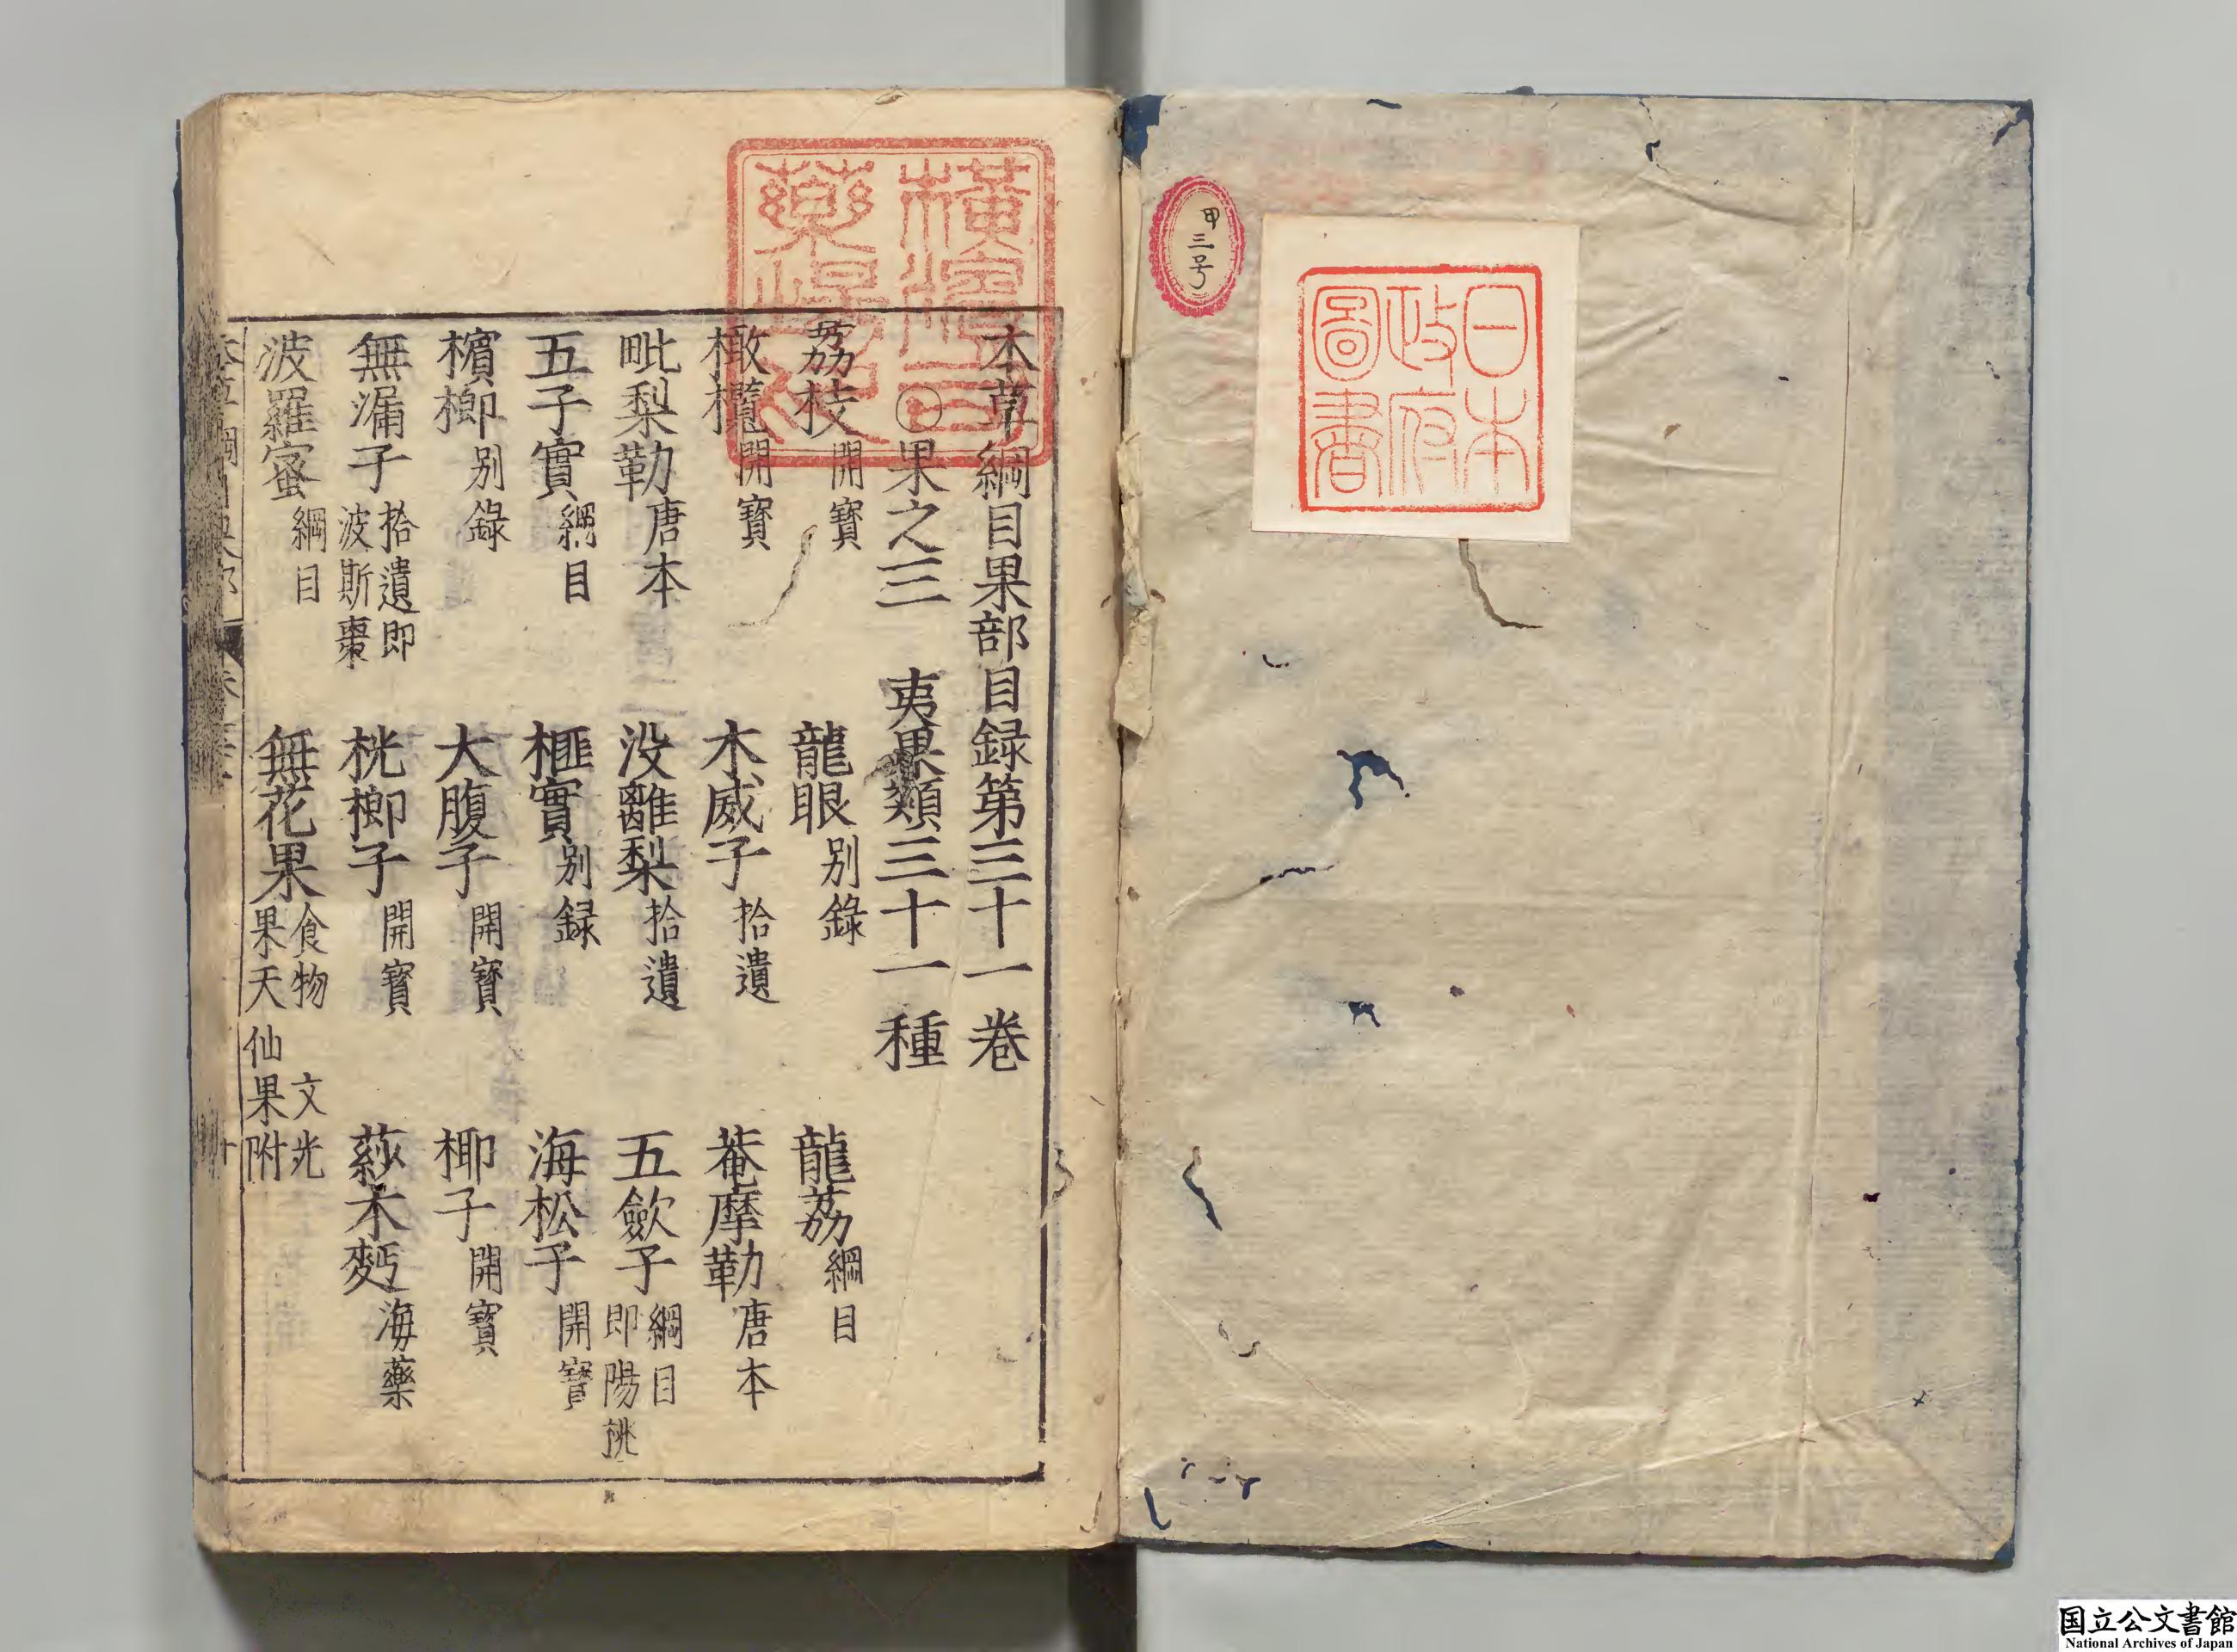 甲三号
日本
政府
圖書
本草綱目果部目録第三十一卷
○果之三 夷果類三十一種
荔枝開寶 龍眼別錄 龍荔綱目
橄欖開寶 木威子拾遺 菴摩勒唐本
毗梨勒唐本 没離梨拾遺 五歛子綱目即陽桃
五子實綱目 榧實別録 海松子開寶
檳榔別錄 大腹子開寶 椰子開寶
無漏子拾遺即波斯棗 桄榔子開寶 莎木麪海藥
波羅蜜綱目 無花果食物 文光果天仙果附
国立公文書館
National Archives of Japan